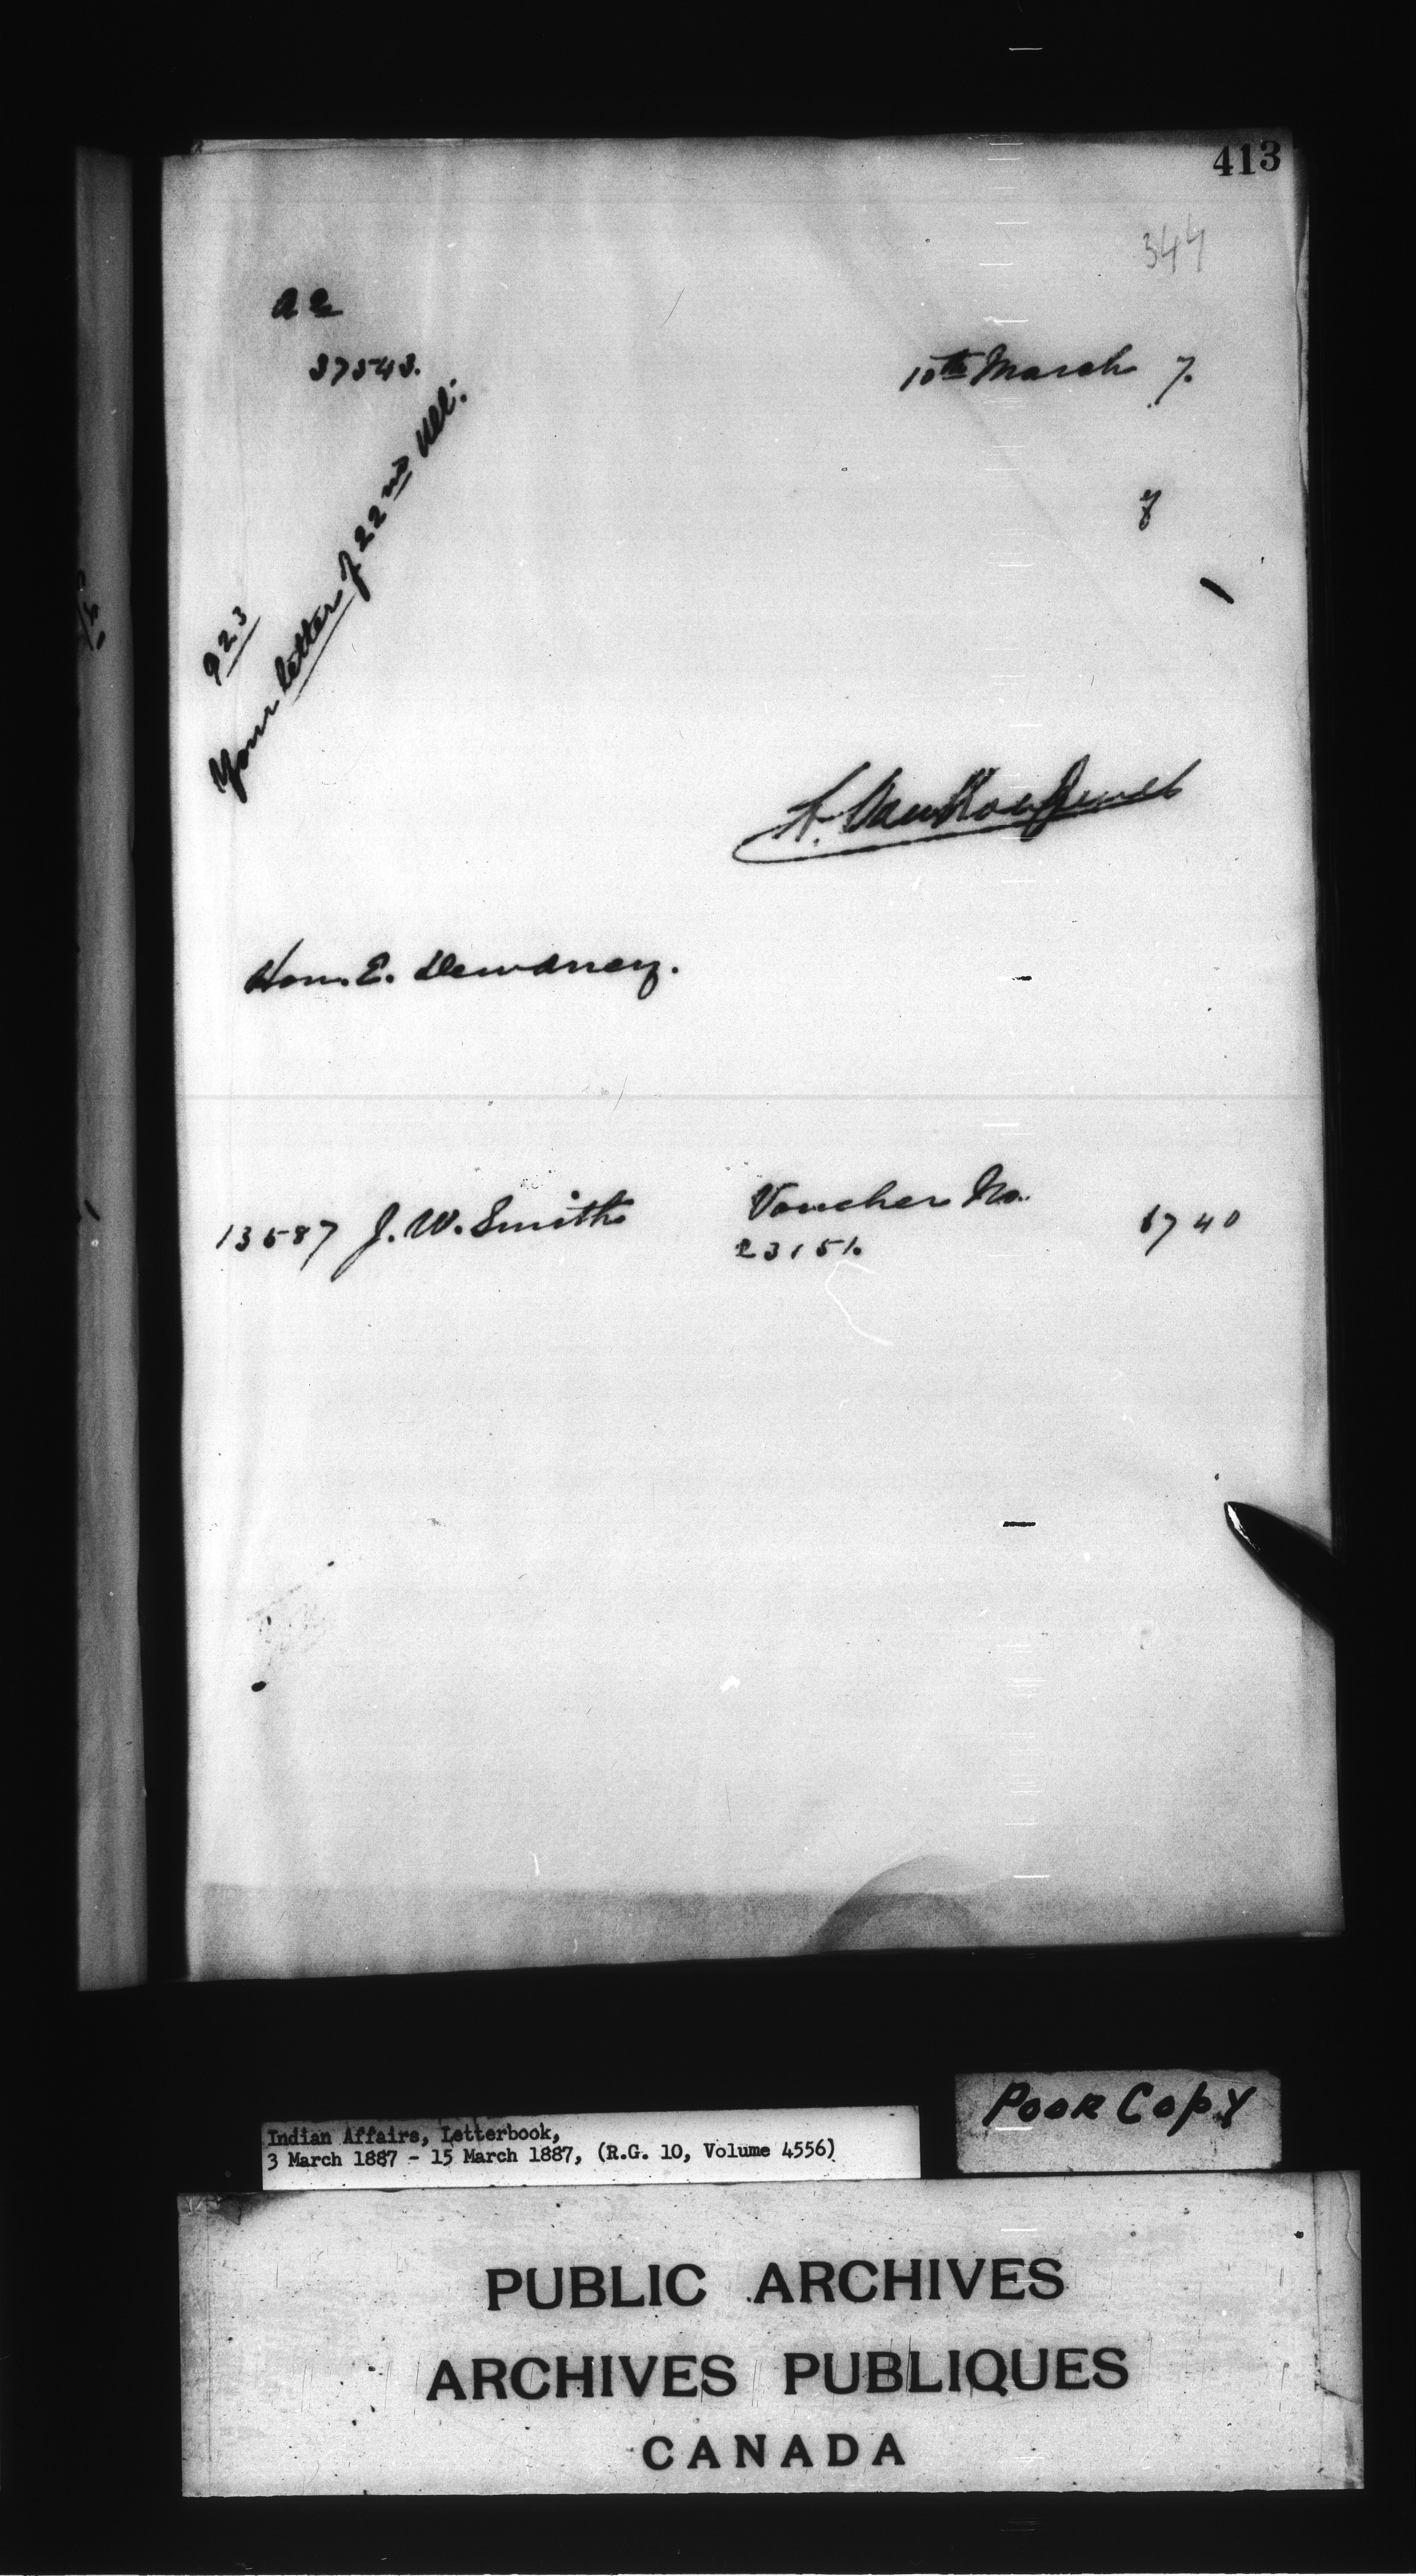 413
344
37543.
10th March 7.
923
Your letter of 22nd Ult:
Hon. E. Dewdney.
13587 J. W. Smith Voucher No. 67 40
23151.
Poor Copy
Indian Affairs, Letterbook,
3 March 1887 - 15 March 1887, (R.G. 10, Volume 4556)
PUBLIC ARCHIVES
ARCHIVES PUBLIQUES
CANADA